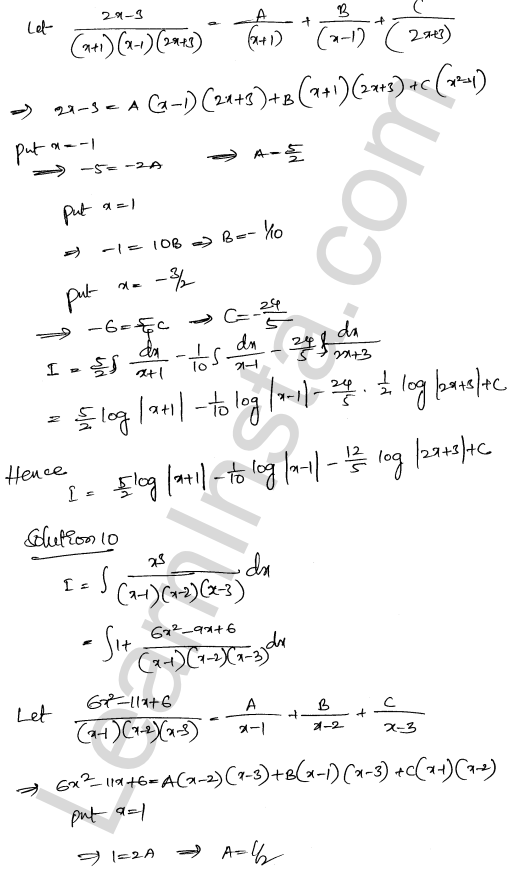 Let (2x-3)/((x+1)(x-1)(2x+3)) = A/(x+1) + B/(x-1) + C/(2x+3)
⇒ 2x-3 = A(x-1)(2x+3)+B(x+1)(2x+3)+C(x²-1)
put x=-1
⇒ -5=-2A ⇒ A=5/2
put x=1
⇒ -1=10B ⇒ B=-1/10
put x=-3/2
⇒ -6=5/4C ⇒ C=-24/5
I = 5/2∫ dx/(x+1) - 1/10 ∫ dx/(x-1) - 24/5 ∫ dx/(2x+3)
= 5/2 log|x+1| - 1/10 log|x-1| - 24/5 · 1/2 log|2x+3|+C
Hence
I = 5/2 log|x+1| - 1/10 log|x-1| - 12/5 log|2x+3|+C
Solution 10
I = ∫ x³/((x-1)(x-2)(x-3)) dx
= ∫1+ (6x²-9x+6)/((x-1)(x-2)(x-3)) dx
Let (6x²-11x+6)/((x-1)(x-2)(x-3)) = A/(x-1) + B/(x-2) + C/(x-3)
⇒ 6x²-11x+6=A(x-2)(x-3)+B(x-1)(x-3)+C(x-1)(x-2)
put x=1
⇒ 1=2A ⇒ A=1/2
LearnInsta.com